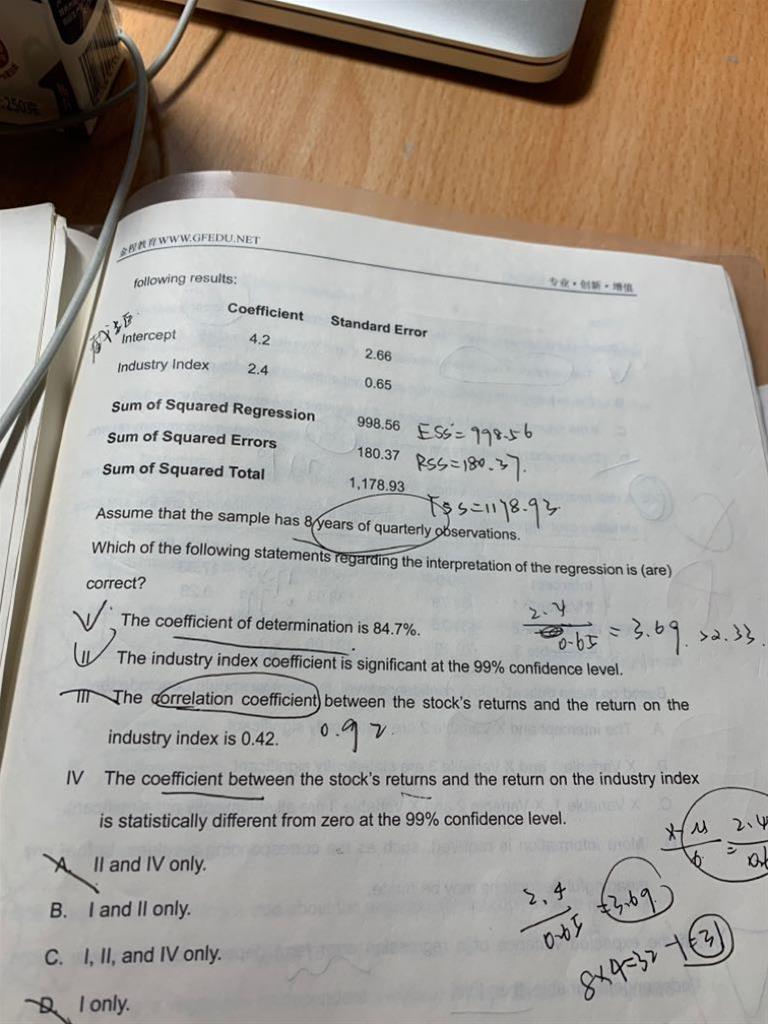 250毫
金程教育 WWW.GFEDU.NET
专业・创新・增值
following results:
Coefficient Standard Error
Intercept 4.2 2.66
Industry Index 2.4 0.65
Sum of Squared Regression 998.56 ESS = 998.56
Sum of Squared Errors 180.37 RSS = 180.37.
Sum of Squared Total 1,178.93 TSS = 1178.93
Assume that the sample has 8 years of quarterly observations.
Which of the following statements regarding the interpretation of the regression is (are)
correct?
The coefficient of determination is 84.7%. 2.4 / 0.65 = 3.69. >2.33.
II The industry index coefficient is significant at the 99% confidence level.
III The correlation coefficient between the stock's returns and the return on the
industry index is 0.42. 0.92.
IV The coefficient between the stock's returns and the return on the industry index
is statistically different from zero at the 99% confidence level.
A. II and IV only.
B. I and II only.
C. I, II, and IV only.
D. I only.
2.4 / 0.65 = 3.69
8×4=32 -1=31